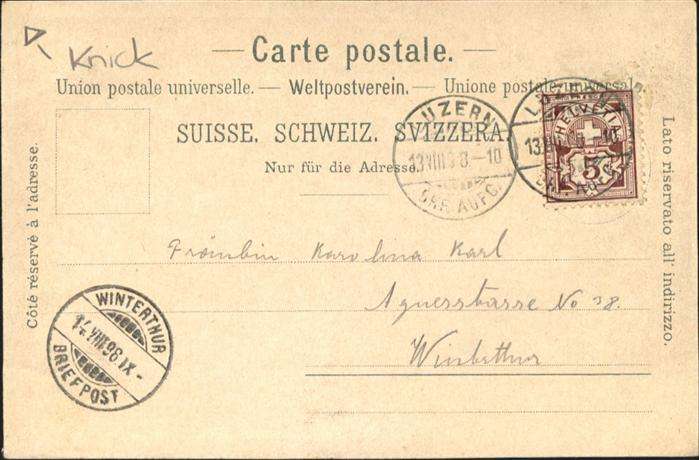 Knick
Carte postale.
Union postale universelle. — Weltpostverein. — Unione postale universale.
SUISSE. SCHWEIZ. SVIZZERA
Nur für die Adresse.
Côté réservé à l'adresse.
Lato riservato all' indirizzo.
LUZERN
13 VIII 98–10
BRF. AUFG.
LUZERN
13 VIII 98–10
BRF. AUFG.
HELVETIA
5
Fräulein Karolina Karl
Agnesstrasse No 38.
Winterthur
WINTERTHUR
14.VIII.98.IX–
BRIEFPOST